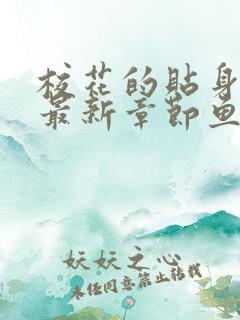 校花的贴身
最新章节鱼
妖妖之心
未经同意禁止转载